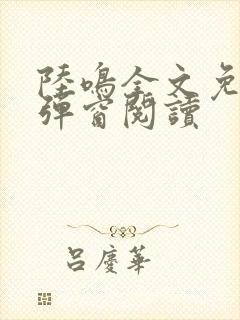 陸鳴全文免
彈窗閱讀
呂慶華